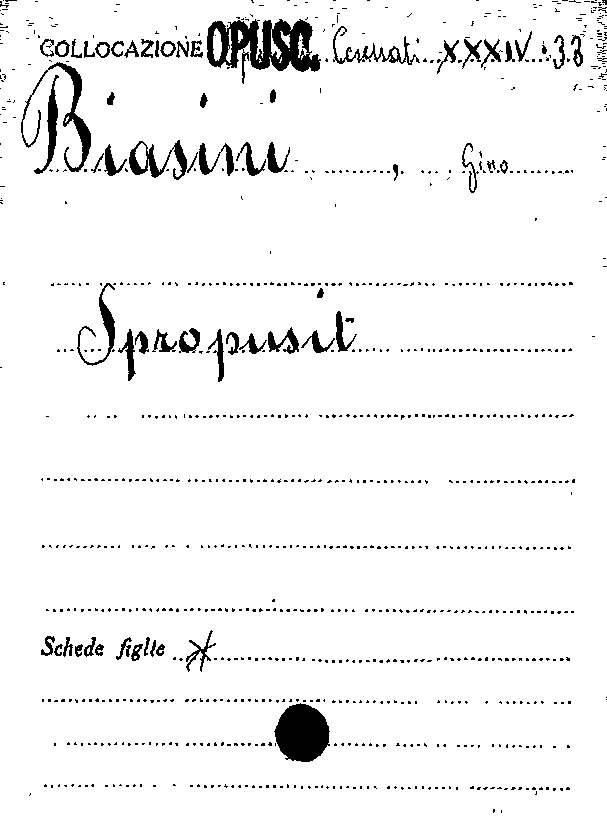 COLLOCAZIONE OPUSC. Cesenati XXXIV. 33
Biasini, Gino
Spropusit
Schede figlie *